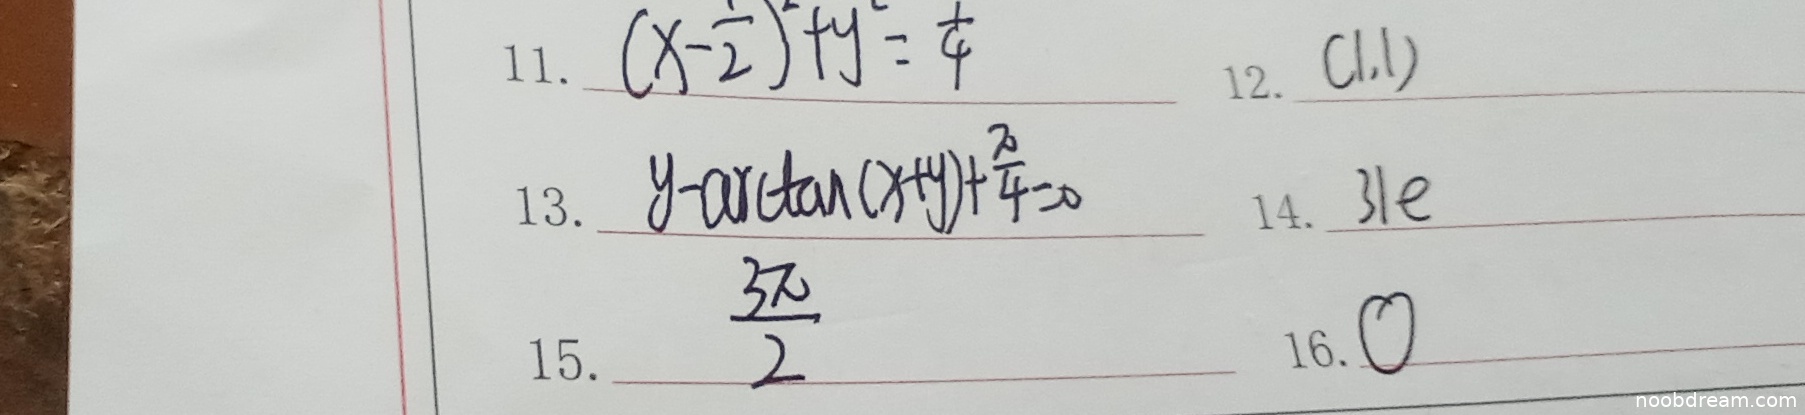 11. (x-1/2)²+y²=1/4
12. (1,1)
13. y-arctan(x+y)+π/4=0
14. 31e
15. 3π/2
16. 0
noobdream.com